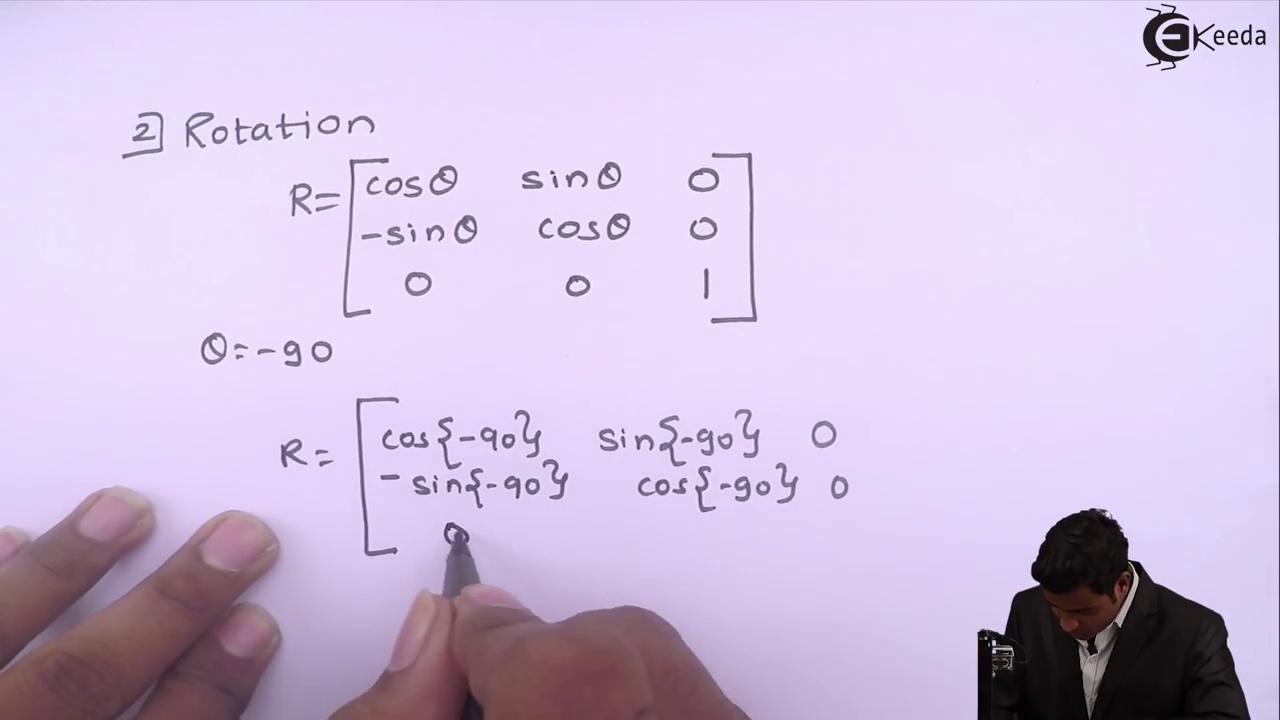 EKeeda
2 Rotation
R= cosθ sinθ 0
-sinθ cosθ 0
0 0 1
θ=-90
R= cos{-90} sin{-90} 0
-sin{-90} cos{-90} 0
0